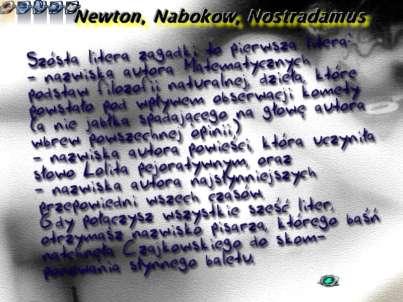 Newton, Nabokow, Nostradamus
Szósta litera zagadki to pierwsza litera:
- nazwiska autora Matematycznych
podstaw filozofii naturalnej, dzieła, które
powstało pod wpływem obserwacji komety
(a nie jabłka spadającego na głowę autora
wbrew powszechnej opinii)
- nazwiska autora powieści, która uczyniła
słowo Lolita pejoratywnym, oraz
- nazwiska autora najsłynniejszych
przepowiedni wszech czasów.
Gdy połączysz wszystkie sześć liter,
otrzymasz nazwisko pisarza, którego baśń
natchnęła Czajkowskiego do skom-
ponowania słynnego baletu.